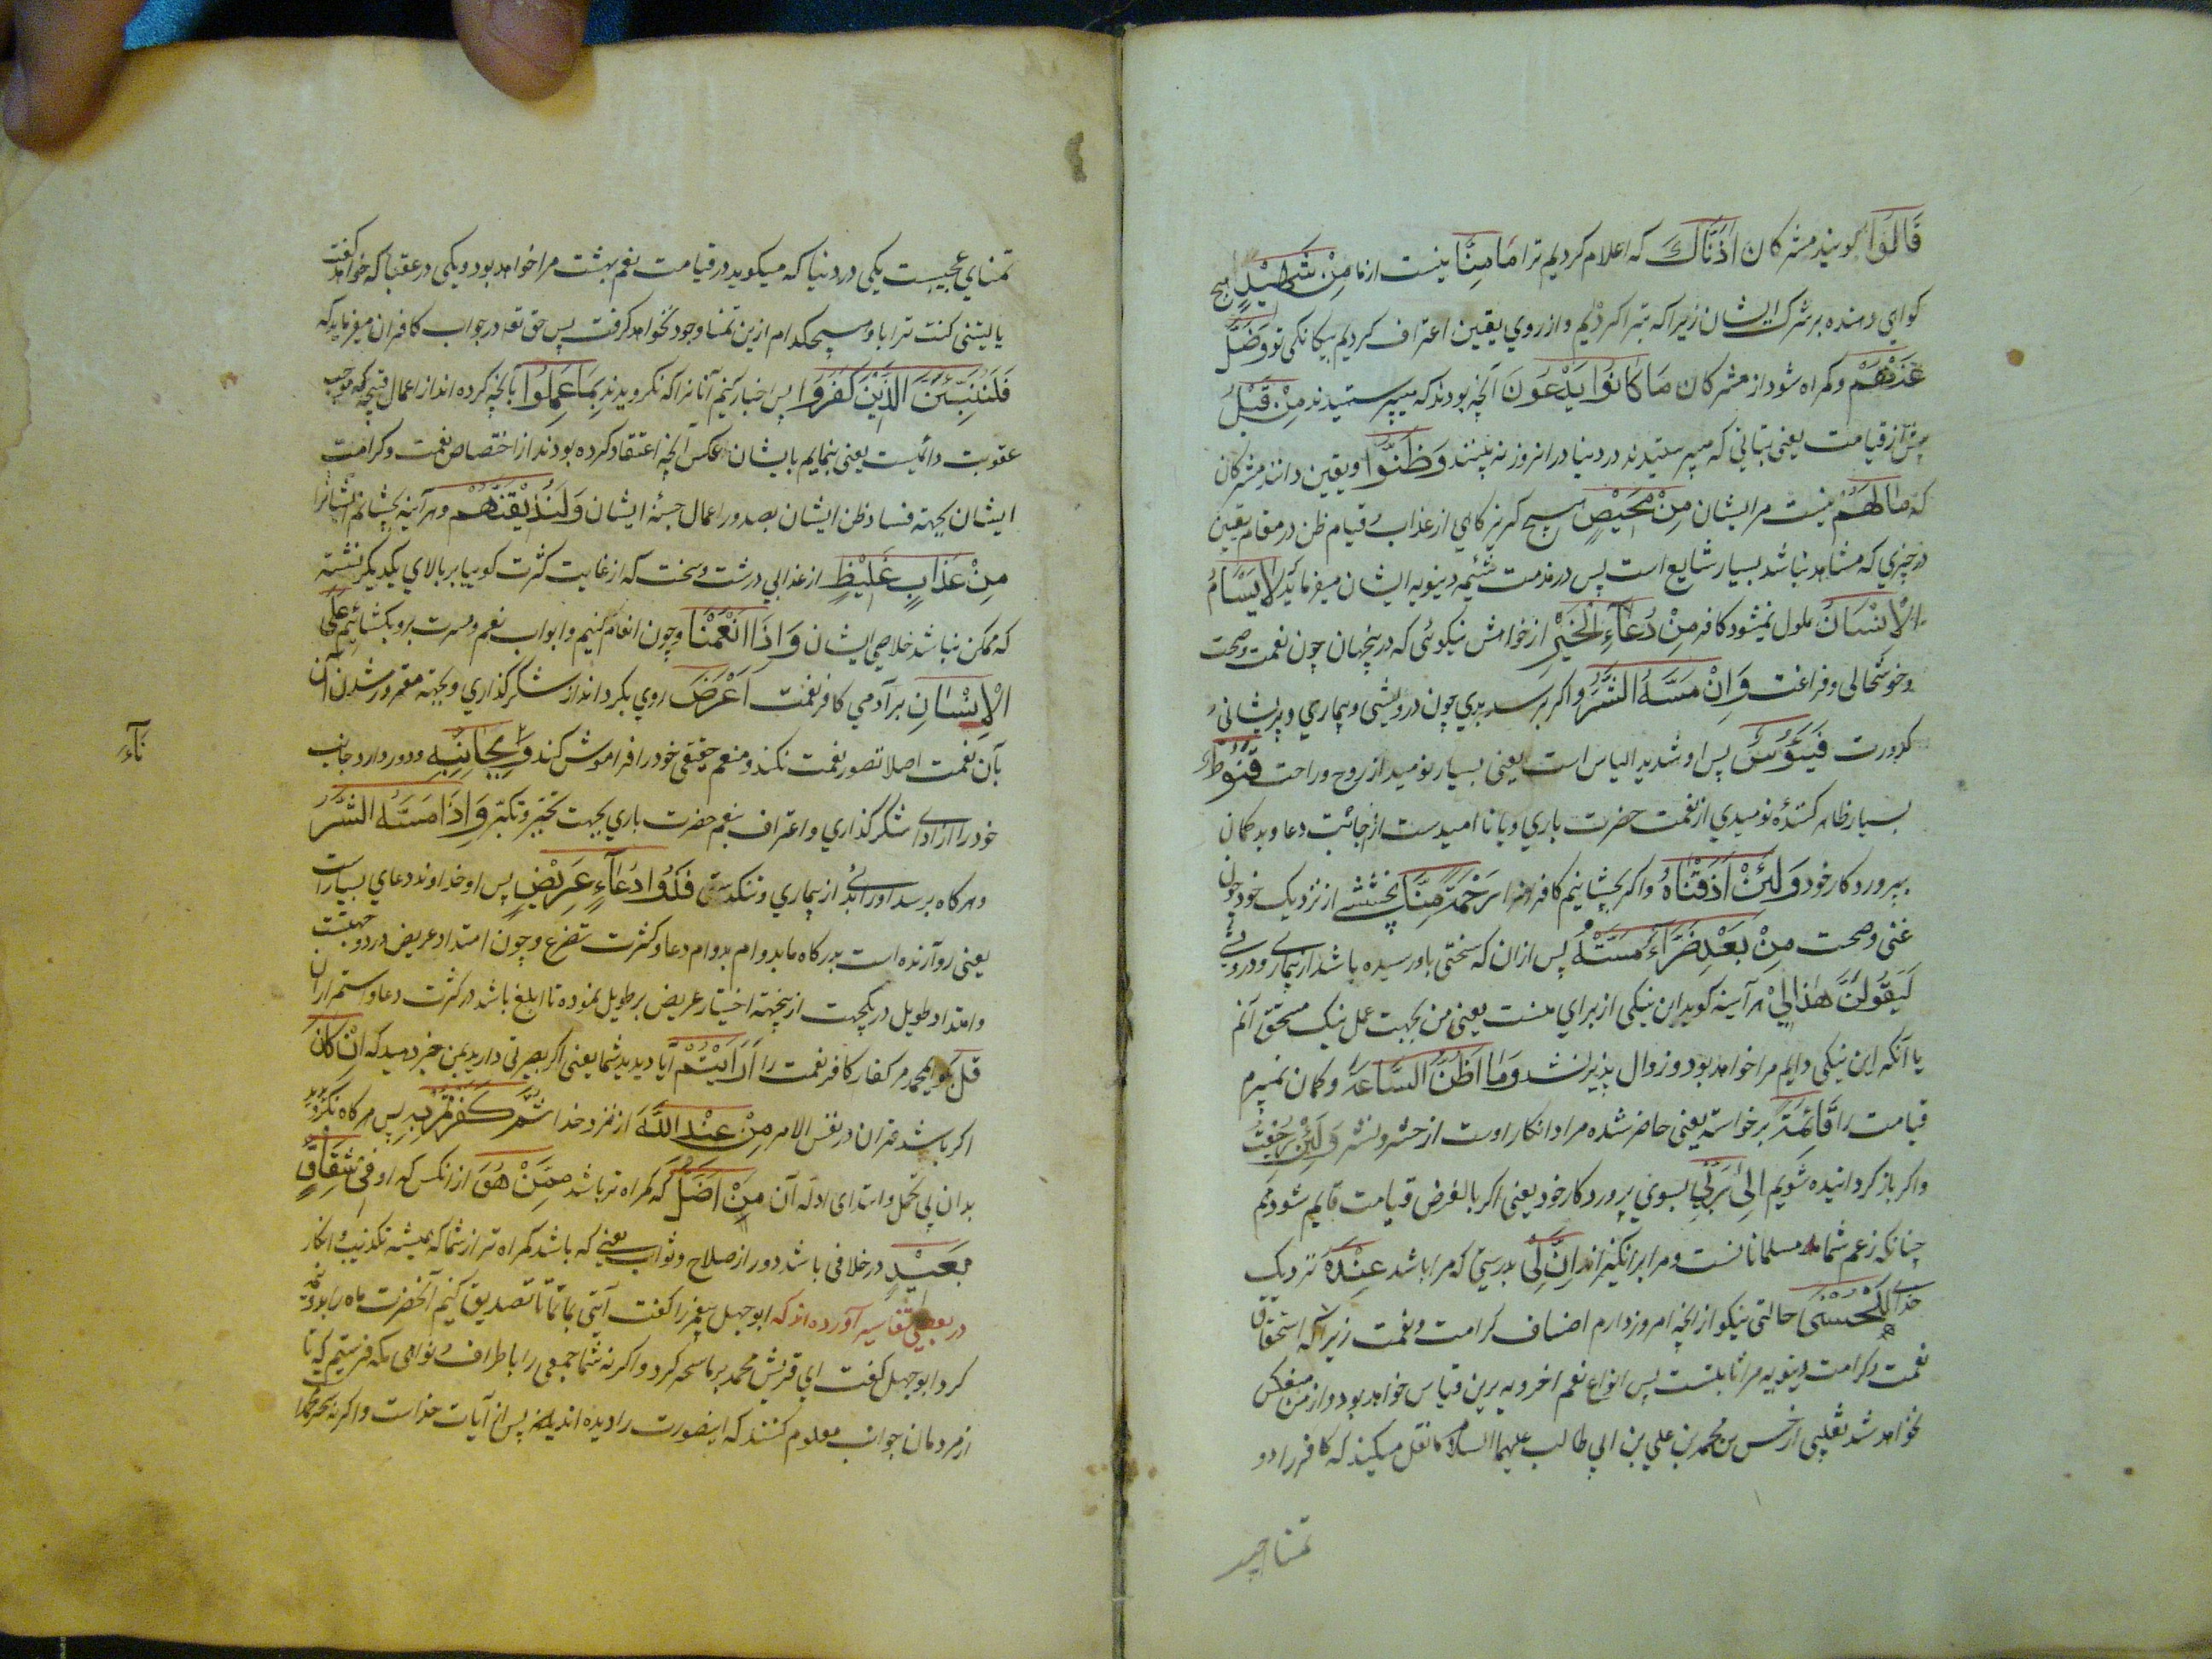 قَالُوا گویند مشرکان اٰذَنَّاكَ که اعلام کردیم ترا مَا مِنَّا نیست از ما مِنْ شَهِیْدٍ هیچ
گواهی دهنده بر شرک ایشان زیرا که تبرا کردیم و از روی یقین اعتراف کردیم بیگانگی تو وَضَلَّ
عَنْهُمْ و گمراه شود از مشرکان مَا كَانُوا یَدْعُونَ آنچه بودند که میپرستیدند مِنْ قَبْلُ
پیش از قیامت یعنی بتانی که میپرستیدند در دنیا در انروز نه بینند وَظَنُّوا و یقین دانند مشرکان
که مَا لَهُمْ نیست مر ایشان مِنْ مَحِیْصٍ هیچ گریز گاهی از عذاب و قیام ظن در مقام یقین
در چیزی که مشاهد نباشد بسیار شایع است پس در مذمت شیمه دنیویه ایشان میفرماید لَا یَسْأَمُ
الْاِنْسَانُ ملول نمیشود کافر مِنْ دُعَآءِ الْخَیْرِ از خواهش نیکوئی که درینجهان چون نعمت و صحت
و خوشحالی و فراغت وَاِنْ مَسَّهُ الشَّرُّ و اگر برسد بدی چون درویشی و بیماری و پریشانی و
کدورت فَیَؤُسٌ پس او شدید الیاس است یعنی بسیار نومید از روح و راحت قَنُوطٌ
بسیار ظاهر کنندهٔ نومیدی از نعمت حضرت باری و یا ناامیدست از اجابت دعا و بدگمان
بپروردگار خود وَلَئِنْ اَذَقْنَاهُ و اگر بچشانیم کافر را رَحْمَةً مِنَّا بخششی از نزدیک خود چون
غنی و صحت مِنْ بَعْدِ ضَرَّآءَ مَسَّتْهُ پس از ان که سختی باو رسیده باشد از بیماری و درویشی
لَیَقُولَنَّ هٰذَا لِیْ هر آینه گوید این نیکی از برای منست یعنی من بجهت عمل نیک مستحق آنم
یا آنکه این نیکی دایم مرا خواهد بود و زوال پذیر نشد وَمَا اَظُنُّ السَّاعَةَ و گمان نمیبرم
قیامت را قَآئِمَةً برخواسته یعنی حاضر شده مراد انکار اوست از حشر و نشر وَلَئِنْ رُجِعْتُ
و اگر باز گردانیده شویم اِلٰی رَبِّیْ بسوی پروردگار خود یعنی اگر بالفرض قیامت قایم شود هم
چنانکه زعم شما مسلمانانست و مرا برانگیزانند اِنَّ لِیْ بدرستی که مرا باشد عِنْدَهُ نزدیک
خدای لَلْحُسْنٰی حالتی نیکو از آنچه امروز دارم اضعاف کرامت و نعمت زیرا که استحقاق
نعمت و کرامت دنیویه مرا ثابتست پس انواع نعم اخرویه برین قیاس خواهد بود و از من منفک
نخواهد شد ثعلبی از حسن بن محمد بن علی بن ابی طالب علیهما السلام نقل میکند که کافر را دو
تمنای عجیبست یکی در دنیا که میگوید در قیامت نعم بهشت مرا خواهد بود و یکی در عقبا که خواهد گفت
یا لیتنی کنت ترابا و هیچکدام ازین تمنا وجود نخواهد گرفت پس حق تعا در جواب کافران میفرماید که
فَلَنُنَبِّئَنَّ الَّذِیْنَ كَفَرُوا پس اخبار کنیم آنانرا که نگرویدند بِمَا عَمِلُوا بآنچه کرده اند از اعمال قبیحه که موجب
عقوبت دائمیست یعنی بنمایم بایشان عکس آنچه اعتقاد کرده بودند از اختصاص نعمت و کرامت
ایشان بجهته فساد ظن ایشان بصدور اعمال حسنه ایشان وَلَنُذِیْقَنَّهُمْ و هر آینه بچشانیم ایشانرا
مِنْ عَذَابٍ غَلِیْظٍ از عذابی درشت و سخت که از غایت کثرت گوییا بر بالای یکدیگر نشسته
که ممکن نباشد خلاصی ایشان وَاِذَا اَنْعَمْنَا و چون انعام کنیم و ابواب نعم و مسرت برو بکشائیم عَلَی
الْاِنْسَانِ بر آدمی کافر نعمت اَعْرَضَ روی بگرداند از شکر گذاری و بجهته مغرور شدن آن
بآن نعمت اصلا تصور نعمت نکند و منعم حقیقی خود را فراموش کند وَ بِجَانِبِهِ و دور دارد جانب
نَآءَ
خود را از ادای شکر گذاری و اعتراف بنعم حضرت باری بجهت تجبر و تکبر وَاِذَا مَسَّهُ الشَّرُّ
و هرگاه برسد او را بدی از بیماری و تنگدستی فَذُوا دُعَآءٍ عَرِیْضٍ پس او خداوند دعای بسیار است
یعنی رو آرنده است بدرگاه ما بدوام بدوام دعا و کثرت تضرع و چون امتداد عریض در دو جهتست
و امتداد طویل در یکجهت ازینجهته اختیار عریض بر طویل نموده تا ابلغ باشد در کثرت دعا و استمرار ان
قُلْ بگو ایمحمد مر کفار کافر نعمت را اَرَاَیْتُمْ آیا دیدید شما یعنی اگر بصیرتی دارید بمن خبر دهید که اِنْ كَانَ
اگر باشد قران در نفس الامر مِنْ عِنْدِ اللّٰهِ از نزد خدا ثُمَّ كَفَرْتُمْ بِهِ پس هرگاه نگروید
بدان بی تحمل و استدای ادله آن مِنْ اَضَلُّ که گمراه تر باشد مِمَّنْ هُوَ از انکس که او فِیْ شِقَاقٍ
بَعِیْدٍ در خلافی باشد دور از صلاح و ثواب یعنی که باشد گمراه تر از شما که همیشه تکذیب و انکار
در بعضی تفاسیر آورده اند که ابو جهل پیغمبر را گفت آیتی بما نما تا تصدیق کنیم آنحضرت ماه را بدو نیمه
کرد ابو جهل گفت ای قریش محمد بر ما سحر کرد و اگر نه شما جمعی را باطراف و نواحی مکه فرستیم که تا
از مردمان جواب معلوم کنند که اینصورت را دیده اند پس از آیات خداست و اگر نه سحر محمد است